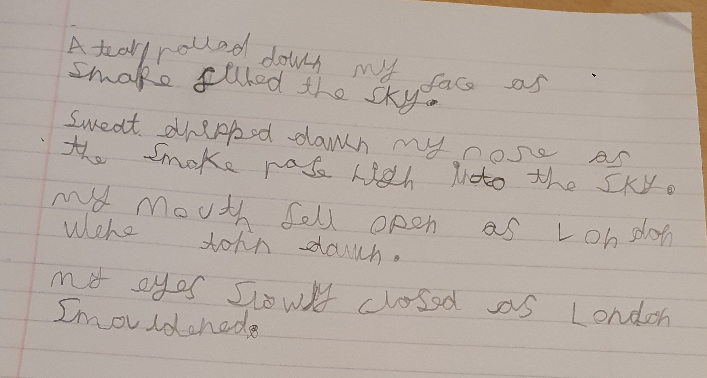 A tear rolled down my face as
smoke filled the sky.
Sweat dripped down my nose as
the smoke rose high into the sky.
My mouth fell open as London
were torn down.
My eyes slowly closed as London
smouldered.